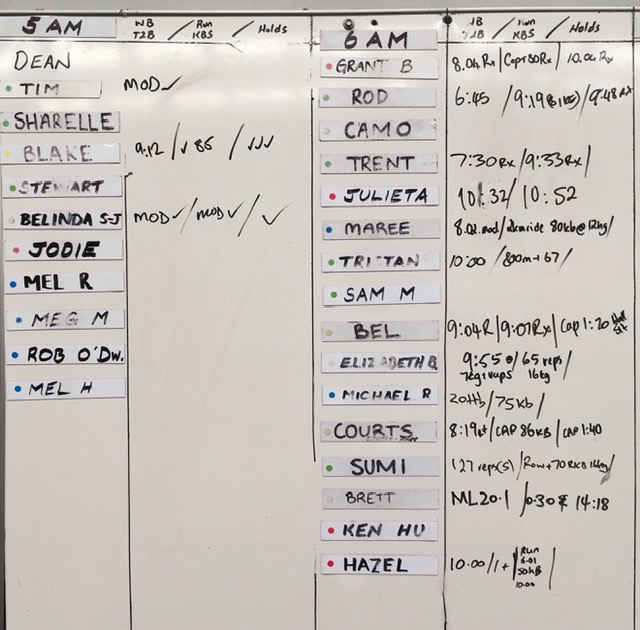 5 AM
WB / Run / Holds
T2B KBS
DEAN
TIM MOD ✓
SHARELLE
BLAKE 9:12 / ✓ 85 / ✓✓✓
STEWART
BELINDA S-J MOD ✓ / MOD ✓ / ✓
JODIE
MEL R
MEG M
ROB O'DW.
MEL H
6 AM
WB / Run / Holds
T2B KBS
GRANT B 8.04 Rx / Cap+80Rx / 10.04 Rx
ROD 6:45 / 9:19 / 9:48 Rx
CAMO
TRENT 7:30 Rx / 9:33 Rx /
JULIETA 10:32 / 10:52
MAREE 8.02.mod / 2kmride 80kb@12kg /
TRISTAN 10:00 / 800m + 67 /
SAM M
BEL 9:04 R / 9:07 Rx / Cap 1:20
ELIZABETH B 9:55 / 65 reps /
7kg 16kg
MICHAEL R 20ttb / 75kb /
COURTS 8:19 / CAP 86KB / CAP 1:40
SUMI 127 reps(s) / Row + 70 RKB 14kg /
BRETT ML20.1 / 14:18
KEN HU
HAZEL 10.00 / 1 + / Run
6.01
50KB
10:00